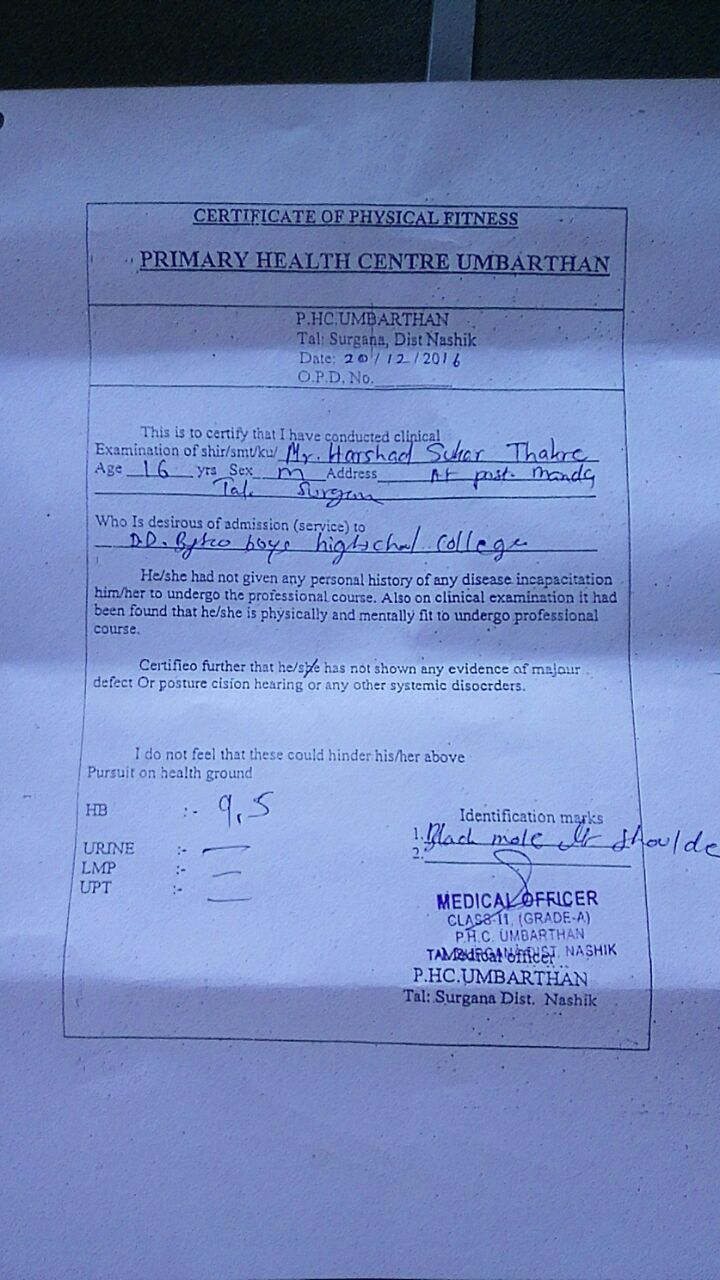 CERTIFICATE OF PHYSICAL FITNESS
PRIMARY HEALTH CENTRE UMBARTHAN
P.HC.UMBARTHAN
Tal: Surgana, Dist Nashik
Date: 20/12/2016
O.P.D. No.
This is to certify that I have conducted clinical
Examination of shir/smt/ku/ Mr. Harshad Sukar Thakre
Age 16 yrs Sex m Address At post. Manda
Tal. Surgan
Who Is desirous of admission (service) to
D.D. Bytco boys highschal college
He/she had not given any personal history of any disease incapacitation
him/her to undergo the professional course. Also on clinical examination it had
been found that he/she is physically and mentally fit to undergo professional
course.
Certifieo further that he/she has not shown any evidence of majour
defect Or posture cision hearing or any other systemic disocrders.
I do not feel that these could hinder his/her above
Pursuit on health ground
HB :- 9.5
URINE :- —
LMP :- —
UPT :- —
Identification marks
1. Black mole shoulde
2.
MEDICAL OFFICER
CLASS-11, (GRADE-A)
P.H.C. UMBARTHAN
TAL SURGANA DIST. NASHIK
Medical officer
P.HC.UMBARTHAN
Tal: Surgana Dist. Nashik